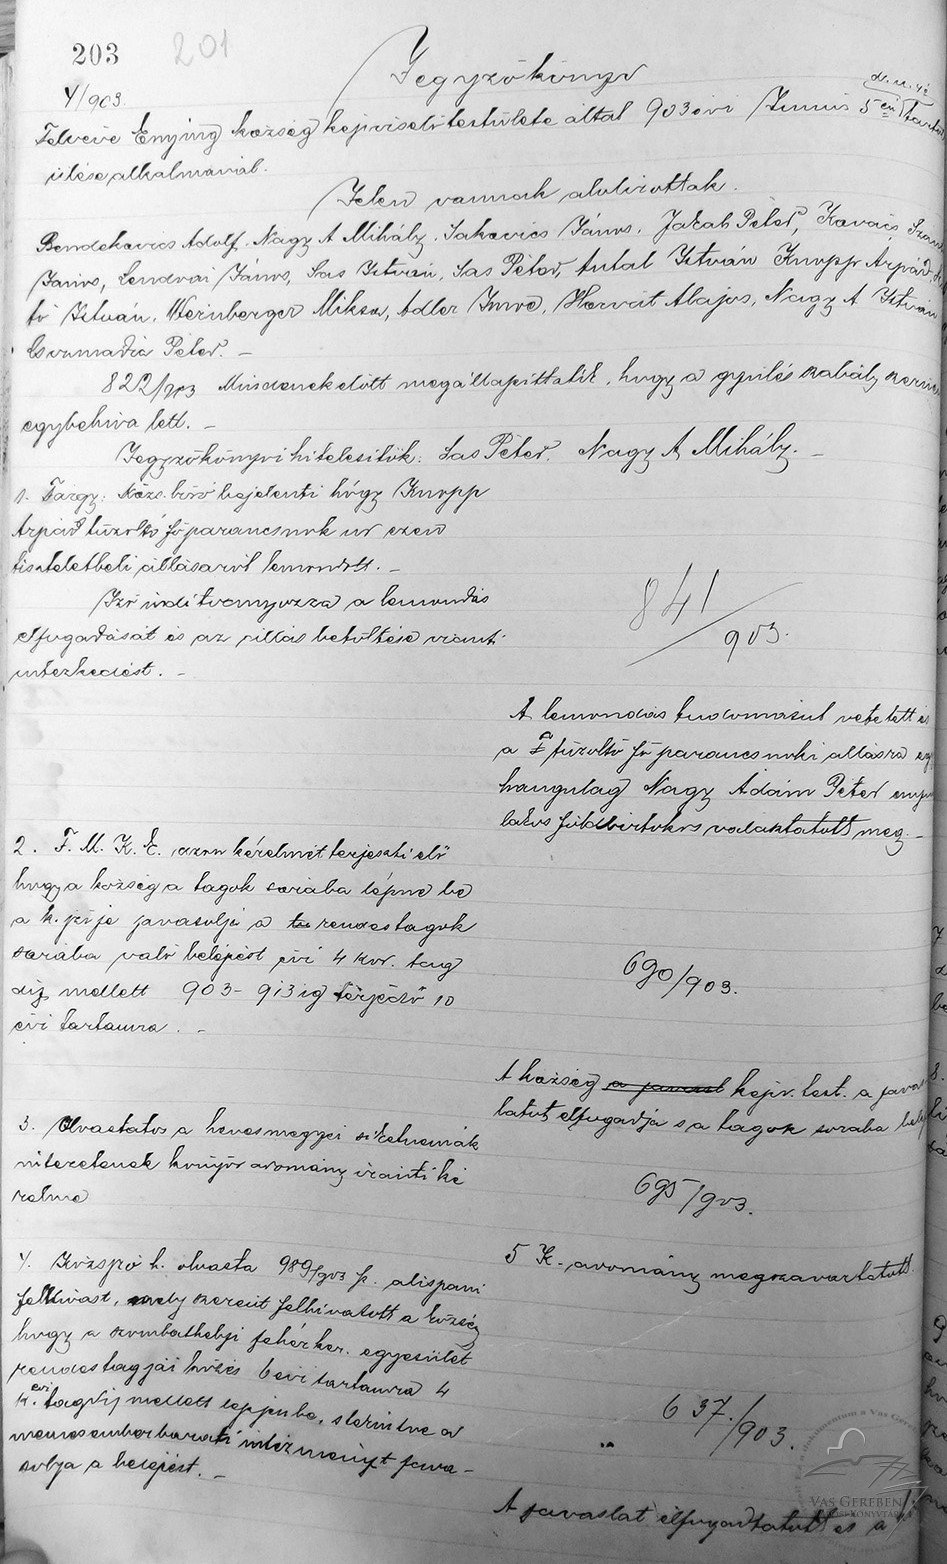 203 201
4/903.
Jegyzőkönyv
d. u. 4ó
Felvéve Enying község képviselőtestülete által 903 évi Junius 5 én tartott
ülése alkalmával.
Jelen vannak alulirottak.
Bendekovics Adolf, Nagy A Mihály, Sakovics János, Jakab Péter, Kovács
János, Lendvai János, Sas István, Sas Péter, Antal István Knopp Árpád,
István, Weinberger Miksa, Adler Imre, Horvát Alajos, Nagy A István
Csizmadia Péter. –
822/903 Mindenekelőtt megállapittatik, hogy a gyülés szabály szerint
egybehiva lett. –
Jegyzőkönyvi hitelesitők: Sas Péter, Nagy A Mihály. –
1. Tárgy: Közs. biró bejelenti hogy Knopp
Árpád tüzoltó főparancsnok ur ezen
tiszteletbeli állásáról lemondott. –
Inditványozza a lemondás
elfogadását és az állás betöltése iránti
intézkedést. –
841/903.
A lemondás tudomásul vétetett és
a tüzoltó főparancsnoki állásra egy
hangulag Nagy Ádám Péter
földbirtokos választatott meg. –
2. F. M. K. E. azon kérelmét terjeszti elő
hogy a község a tagok soraba lépne be
a k. javasolja a rendes tagok
soraba való belépést évi 4 kor. tag
dij mellett 903–913 ig terjedő 10
évi tartamra. –
690/903.
A község a javasl képv. test. a java
latot elfogadja s a tagok soraba belép
3. Olvastatott a hevesmegyei siketnémák
intézetének könyöradomány iránti ké
relme
695/903.
5 K. adomány megszavaztatott.
4. olvasta 989/903 alispáni
felhivást, mely szerint felhivatott a község
hogy a szombathelyi fehérker. egyesület
rendes tagjai közé 6 évi tartamra 4
K. évi tagdij mellett lépjen be,
nemes emberbaráti intézményt java-
solja a belépést. –
637./903.
A javaslat elfogadtatott és a
VAS GEREBEN